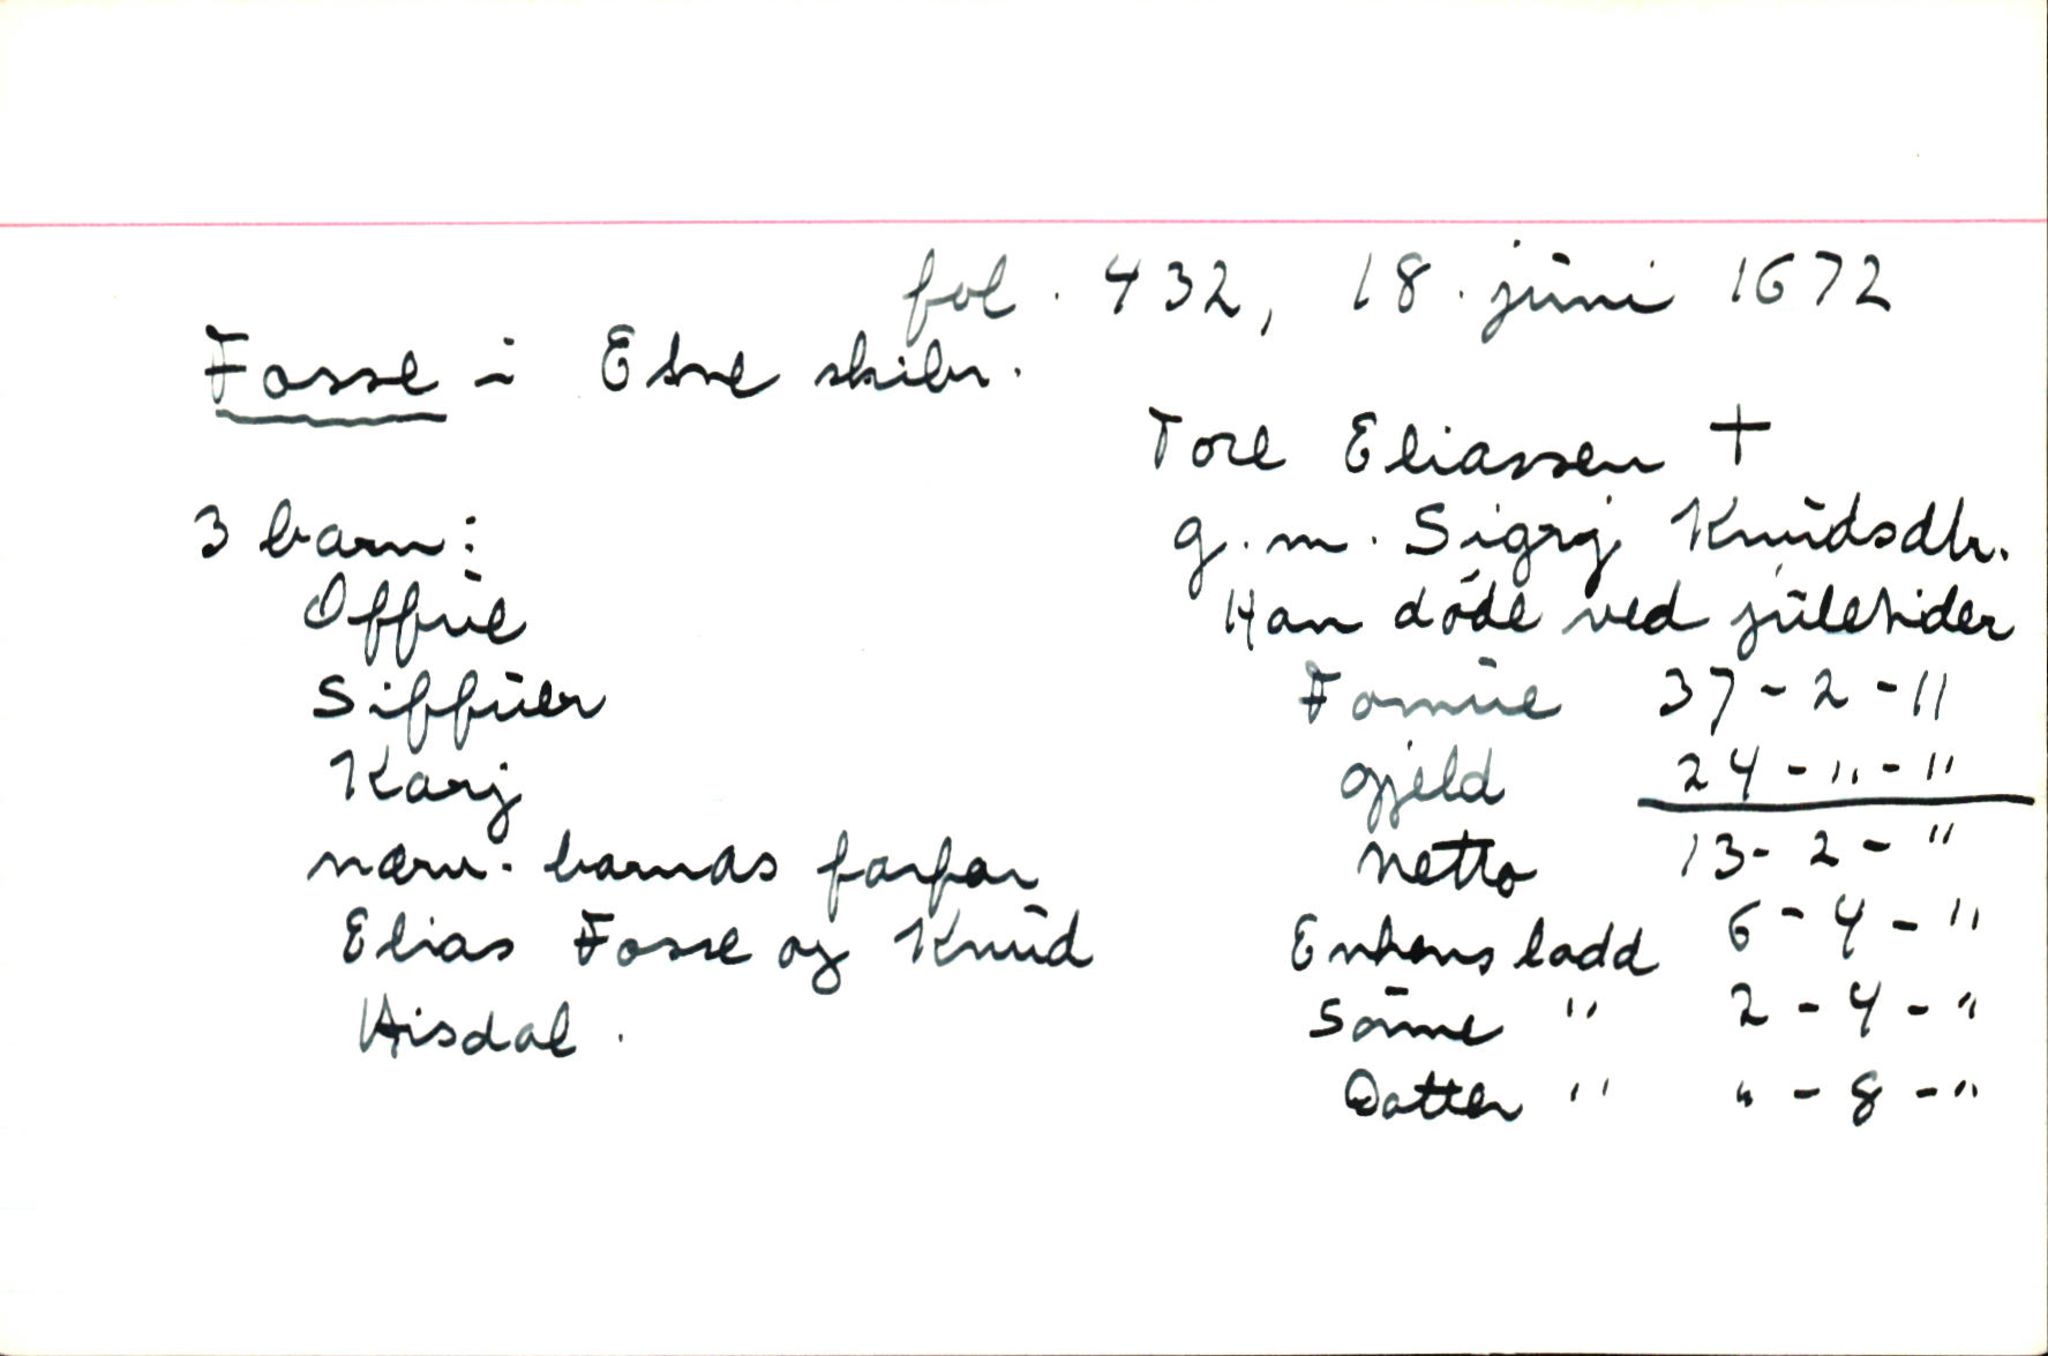 fol. 432, 18. juni 1672
Fosse i Etne skibr.
Tore Eliassen +
g.m. Sigrj Knudsdtr.
Han døde ved juletider
3 barn:
Offue
Siffuer
Karj
nærv. barnas farfar
Elias Fosse og Knud
Hisdal.
Formue 37-2-11
gjeld 24-"-"
Netto 13-2-"
Enkens lodd 6-4-"
Sønne " 2-4-"
Datter " "-8-"